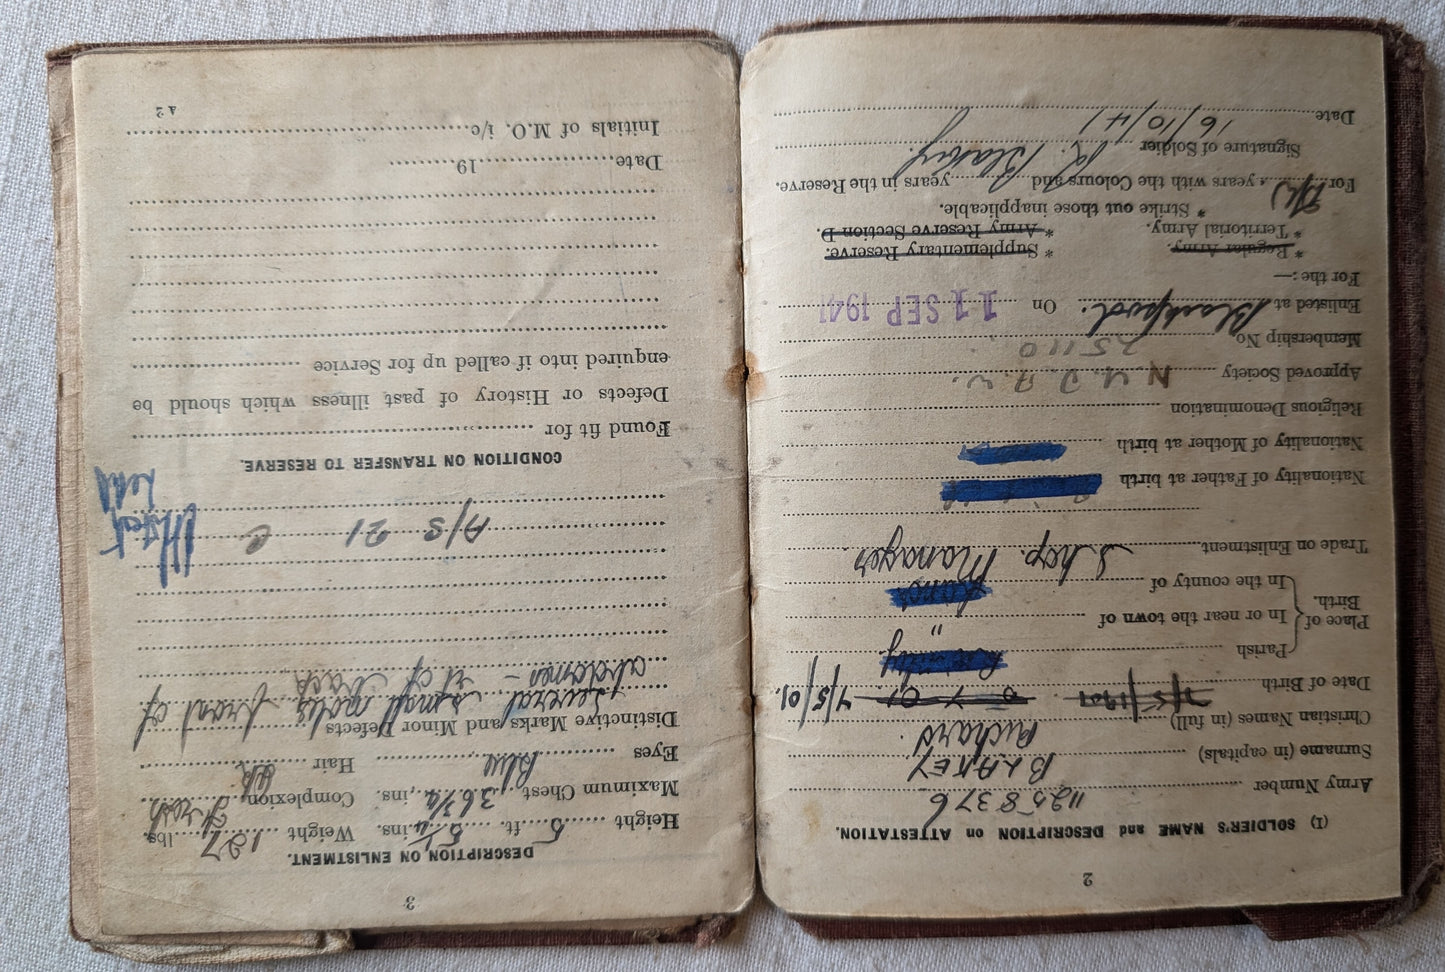 2
(1) SOLDIER'S NAME and DESCRIPTION on ATTESTATION.
Army Number 11258376
Surname (in capitals) BLAKEY
Christian Names (in full) Richard.
Date of Birth 7/5/1901 7/5/01.
Place of Birth.
Parish
In or near the town of "
In the county of
Trade on Enlistment Shop Manager
Nationality of Father at birth
Nationality of Mother at birth
Religious Denomination
Approved Society N.U.D.A.W.
Membership No. 25110
Enlisted at On 11 SEP 1941
For the :—
* Regular Army. * Supplementary Reserve.
* Territorial Army. * Army Reserve Section D.
* Strike out those inapplicable.
For years with the Colours and years in the Reserve.
Signature of Soldier R. Blakey.
Date 16/10/41
3
DESCRIPTION ON ENLISTMENT.
Height 5 ft. 5 1/4 ins. Weight 127 lbs.
Maximum Chest 36 3/4 ins. Complexion Fresh
Eyes Blue Hair
Distinctive Marks and Minor Defects
Several small moles front of
abdomen – rt of back
A/S 21 C
CONDITION ON TRANSFER TO RESERVE.
Found fit for
Defects or History of past illness which should be
enquired into if called up for Service
Date, 19
Initials of M.O. i/c
A 2